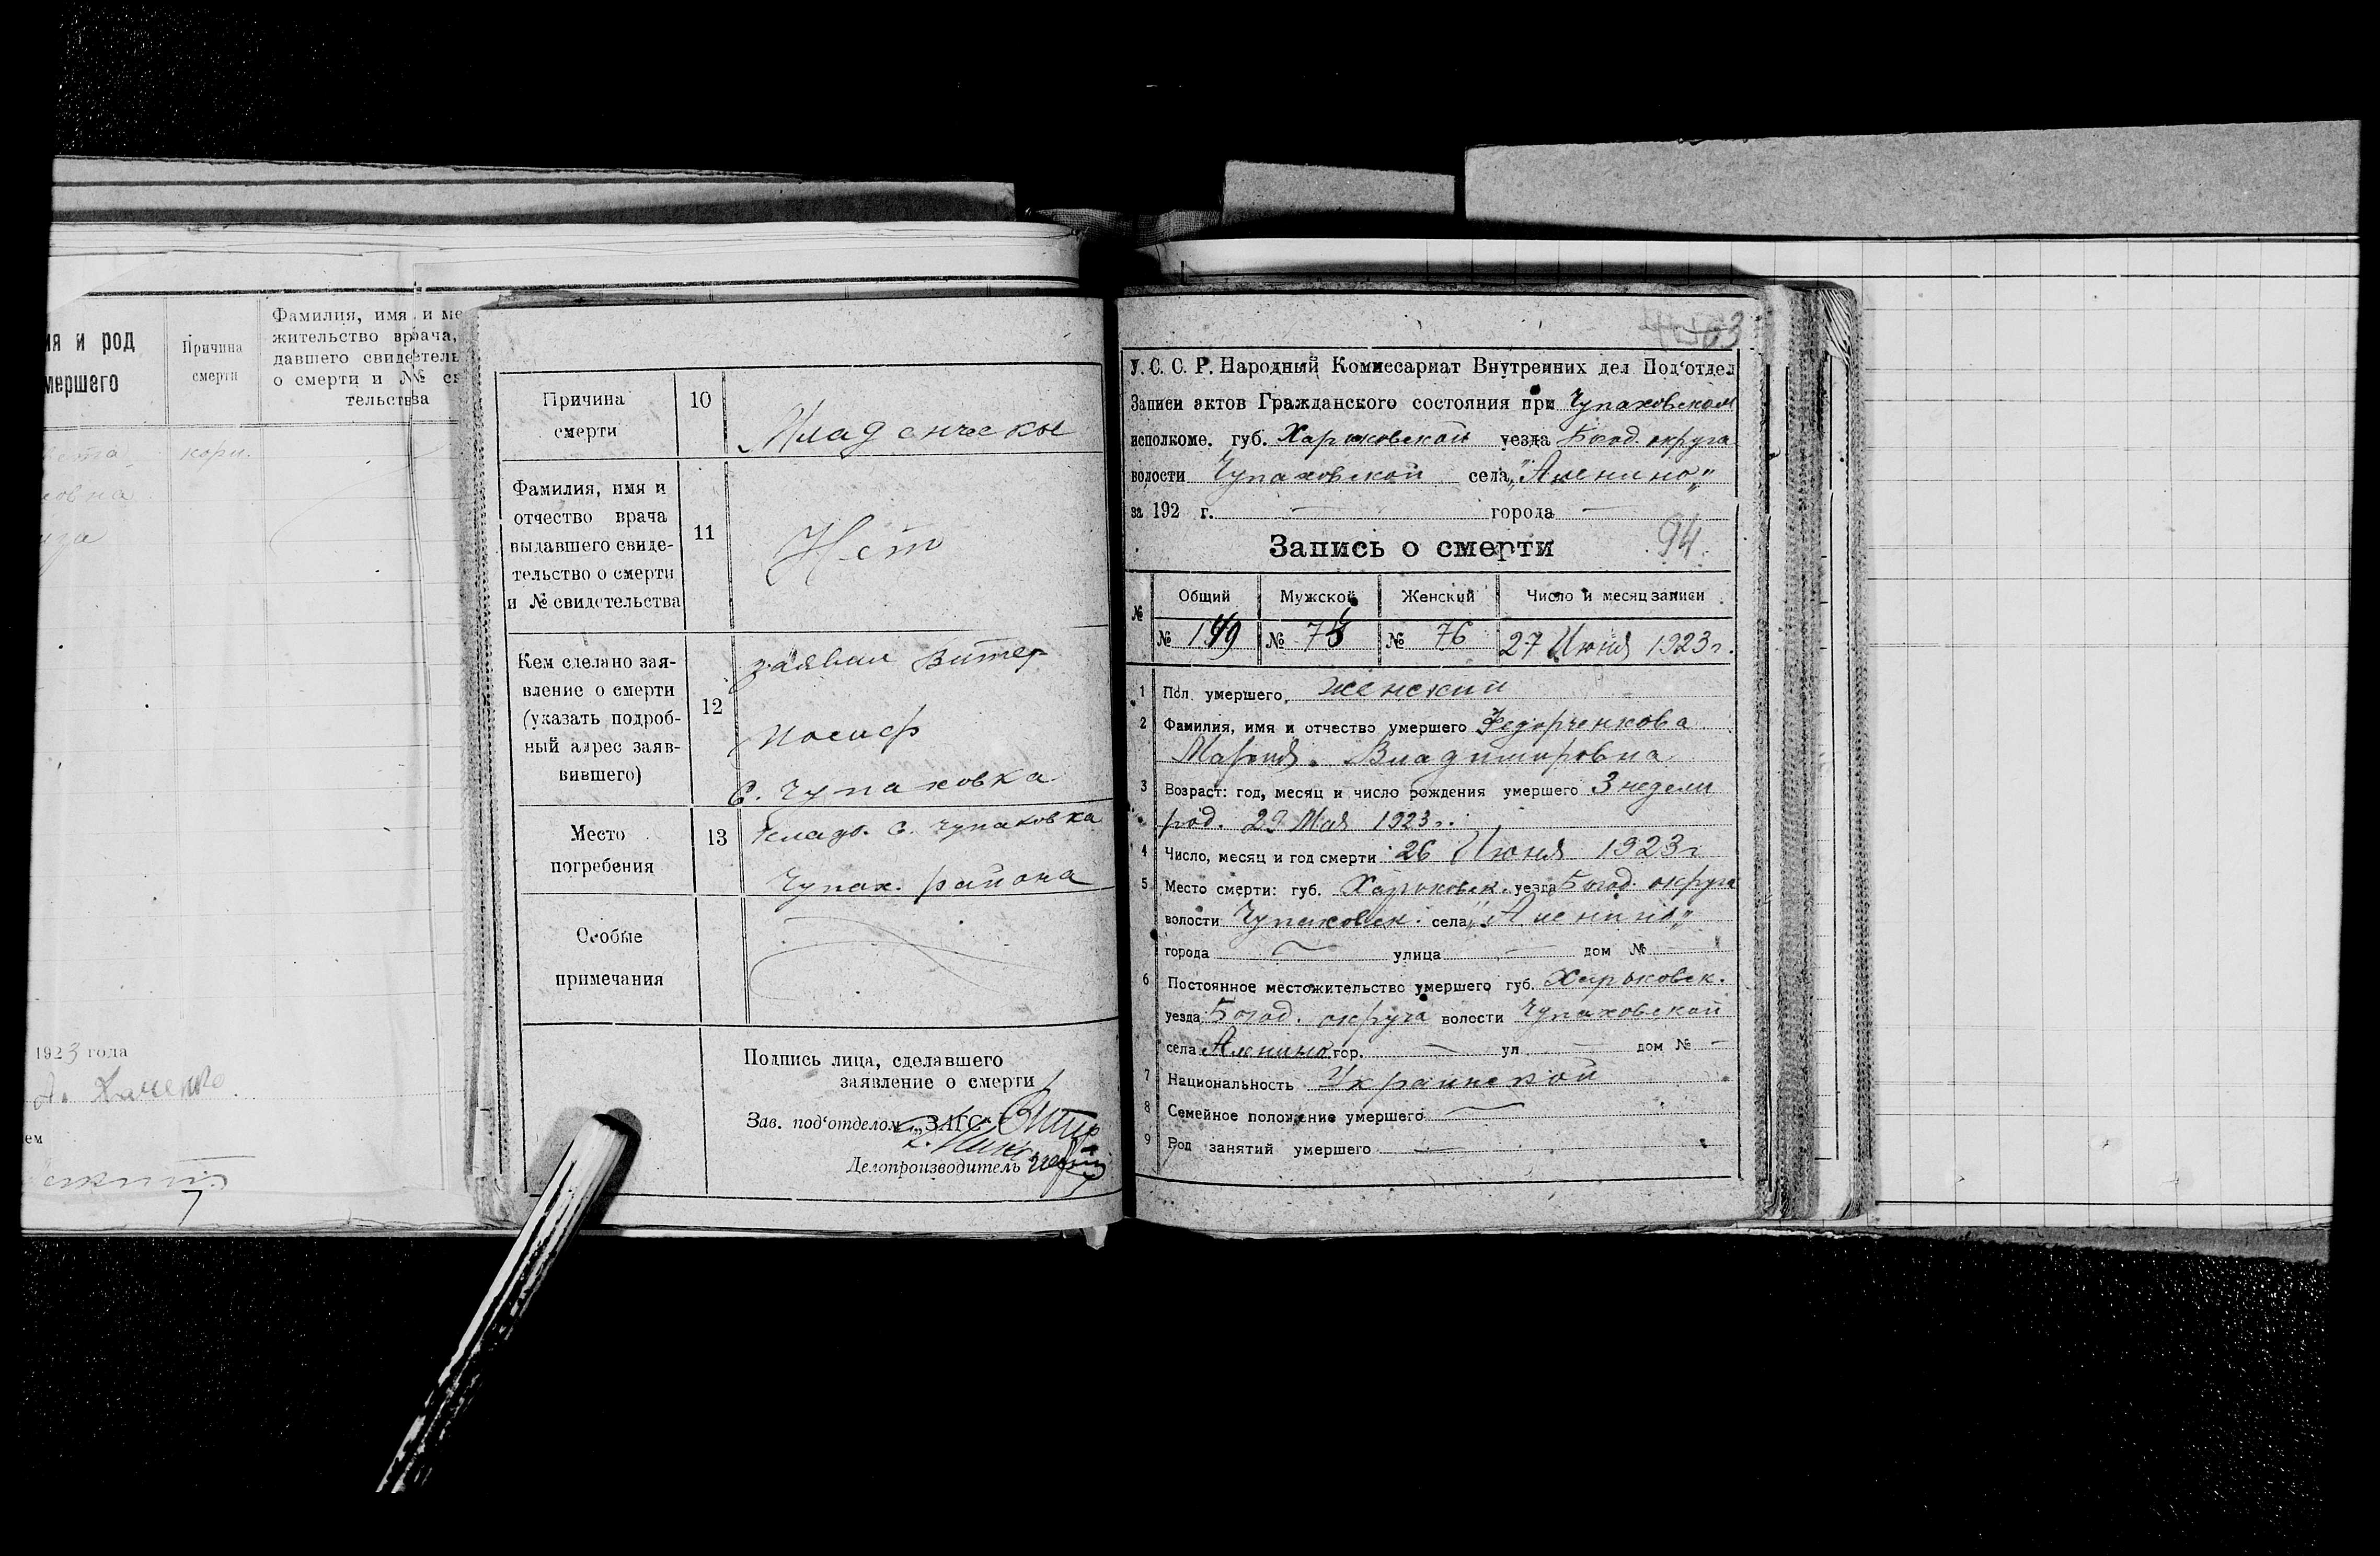 ия и род
мершего
Причина
смерти
Фамилия, имя и ме
жительство врача,
давшего свидетель
о смерти и № св
тельства
кори.
овна
1923 года
ем
7
Причина
смерти
10
Младенческое
Фамилия, имя и
отчество врача
выдавшего свиде-
тельство о смерти
и № свидетельства
11
Нет
Кем сделано зая-
вление о смерти
(указать подроб-
ный адрес заяв-
вившего)
12
заявил Витер
Иосиф
С. Чупаховка
Место
погребения
13
кладб. С. Чупаховка
Чупах. района
Особые
примечания
Подпись лица, сделавшего
заявление о смерти
Зав. под‘отделом „ЗАГС“
Делопроизводитель
У. С. С. Р. Народный Комиссариат Внутренних дел Под‘отдел
Записи актов Гражданского состояния при Чупаховском
исполкоме. губ. Харьковской уезда Богод. округа
волости Чупаховской села „Аленино„
за 192 г. — города —
Запись о смерти 94.
№ Общий Мужской Женский Число и месяц записи
№ 149 № 73 № 76 27 Июня 1923 г.
1 Пол умершего женский
2 Фамилия, имя и отчество умершего Федорченкова
Мария Владимировна
3 Возраст: год, месяц и число рождения умершего 3 недели
род. 29 Мая 1923 г.
4 Число, месяц и год смерти 26 Июня 1923 г
5 Место смерти: губ. Харьковск. уезда Богод. округа
волости Чупаховск. села „Аленино„
города — улица — дом № —
6 Постоянное местожительство умершего губ. Харьковск.
уезда Богод. округа волости Чупаховской
села Аленино гор. — ул — дом № —
7 Национальность Украинской
8 Семейное положение умершего —
9 Род занятий умершего —